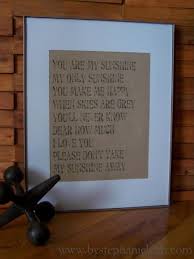 YOU ARE MY SUNSHINE
MY ONLY SUNSHINE
YOU MAKE ME HAPPY
WHEN SKIES ARE GREY
YOU'LL NEVER KNOW
DEAR HOW MUCH
I LOVE YOU
PLEASE DON'T TAKE
MY SUNSHINE AWAY